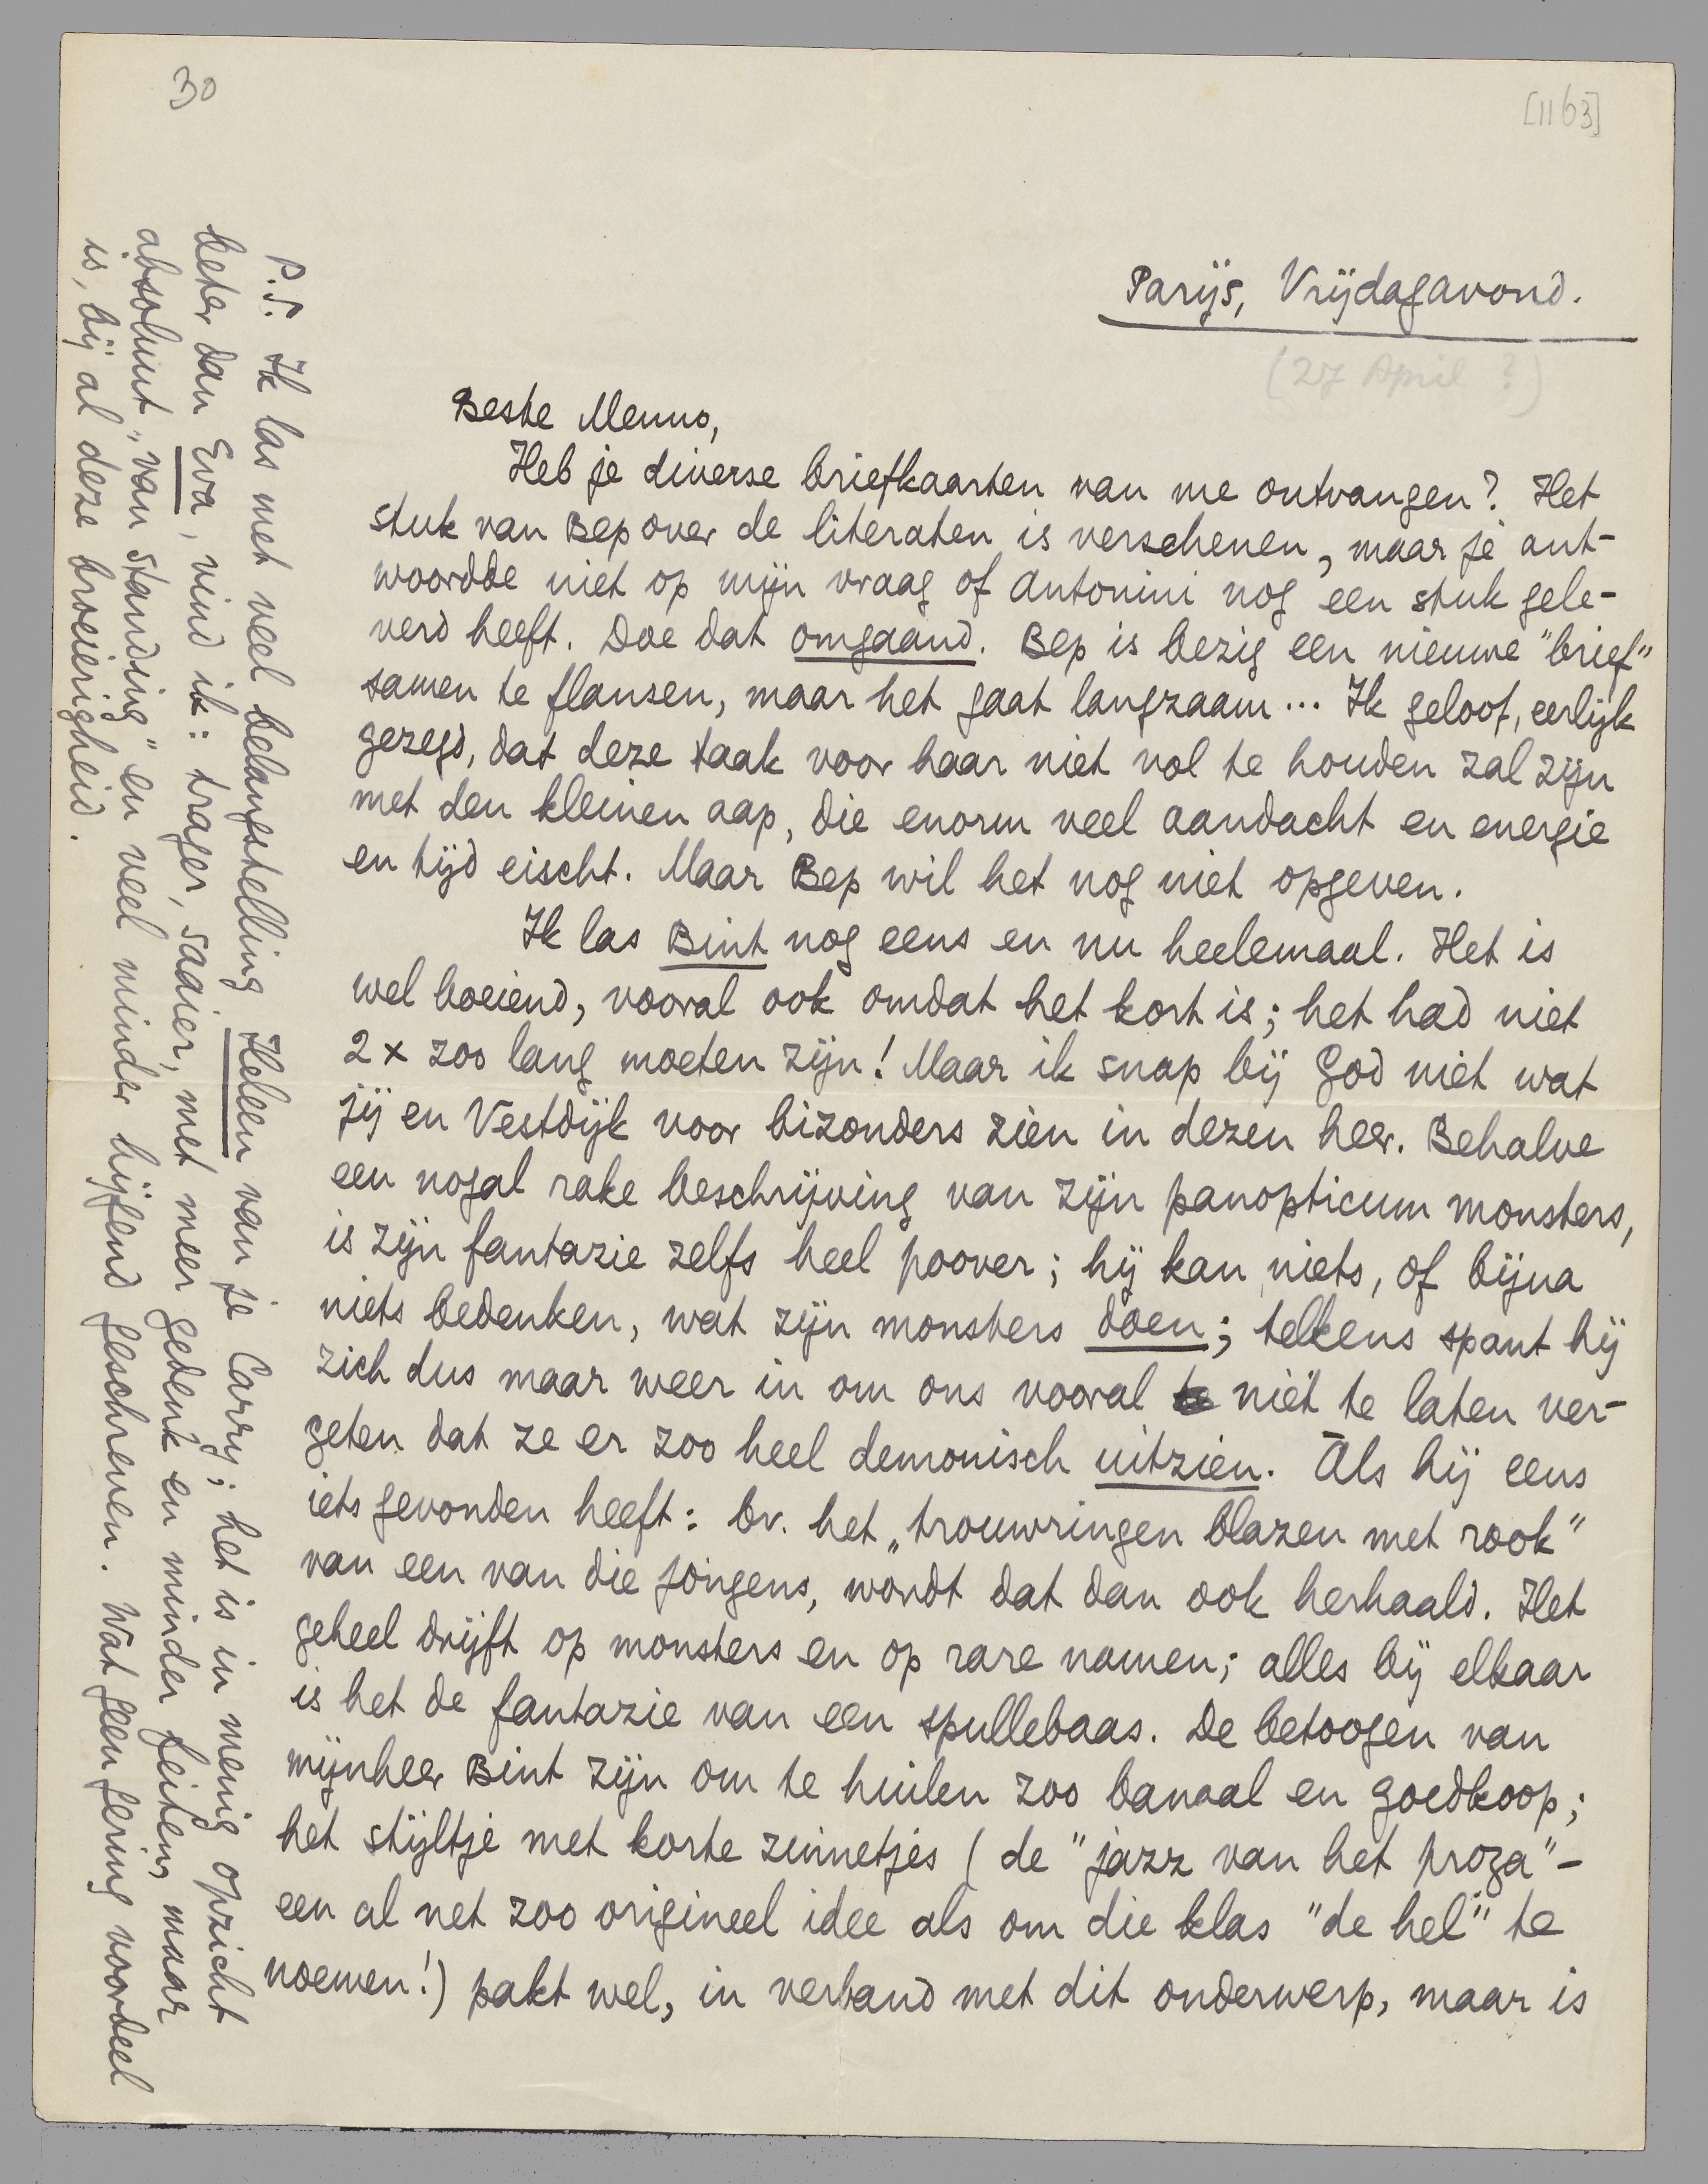 30
[1163]
Parijs, Vrijdagavond.
(27 April ?)
Beste Menno,
Heb je diverse briefkaarten van me ontvangen? Het
stuk van Bep over de literaten is verschenen, maar je ant-
woordde niet op mijn vraag of Antonini nog een stuk gele-
verd heeft. Doe dat omgaand. Bep is bezig een nieuwe "brief"
samen te flansen, maar het gaat langzaam... Ik geloof, eerlijk
gezegd, dat deze taak voor haar niet vol te houden zal zijn
met den kleinen aap, die enorm veel aandacht en energie
en tijd eischt. Maar Bep wil het nog niet opgeven.
Ik las Bint nog eens en nu heelemaal. Het is
wel boeiend, vooral ook omdat het kort is; het had niet
2 x zoo lang moeten zijn! Maar ik snap bij God niet wat
jij en Vestdijk voor bizonders zien in dezen heer. Behalve
een nogal rake beschrijving van zijn panopticum monsters,
is zijn fantazie zelfs heel poover; hij kan niets, of bijna
niets bedenken, wat zijn monsters doen; telkens spant hij
zich dus maar weer in om ons vooral te niet te laten ver-
geten dat ze er zoo heel demonisch uitzien. Als hij eens
iets gevonden heeft: bv. het „trouwringen blazen met rook"
van een van die jongens, wordt dat dan ook herhaald. Het
geheel drijft op monsters en op rare namen; alles bij elkaar
is het de fantazie van een spullebaas. De betoogen van
mijnheer Bint zijn om te huilen zoo banaal en goedkoop;
het stijltje met korte zinnetjes (de "jazz van het proza" -
een al net zoo origineel idee als om die klas "de hel" te
noemen!) pakt wel, in verband met dit onderwerp, maar is
P.S. Ik las met veel belangstelling Heleen van je Carry; het is in menig opzicht
beter dan Eva, vind ik: trager, saaier, met meer gedenk en minder feiten, maar
absoluut „van standing" en veel minder hijgend geschreven. Wat geen gering voordeel
is, bij al deze broeierigheid.